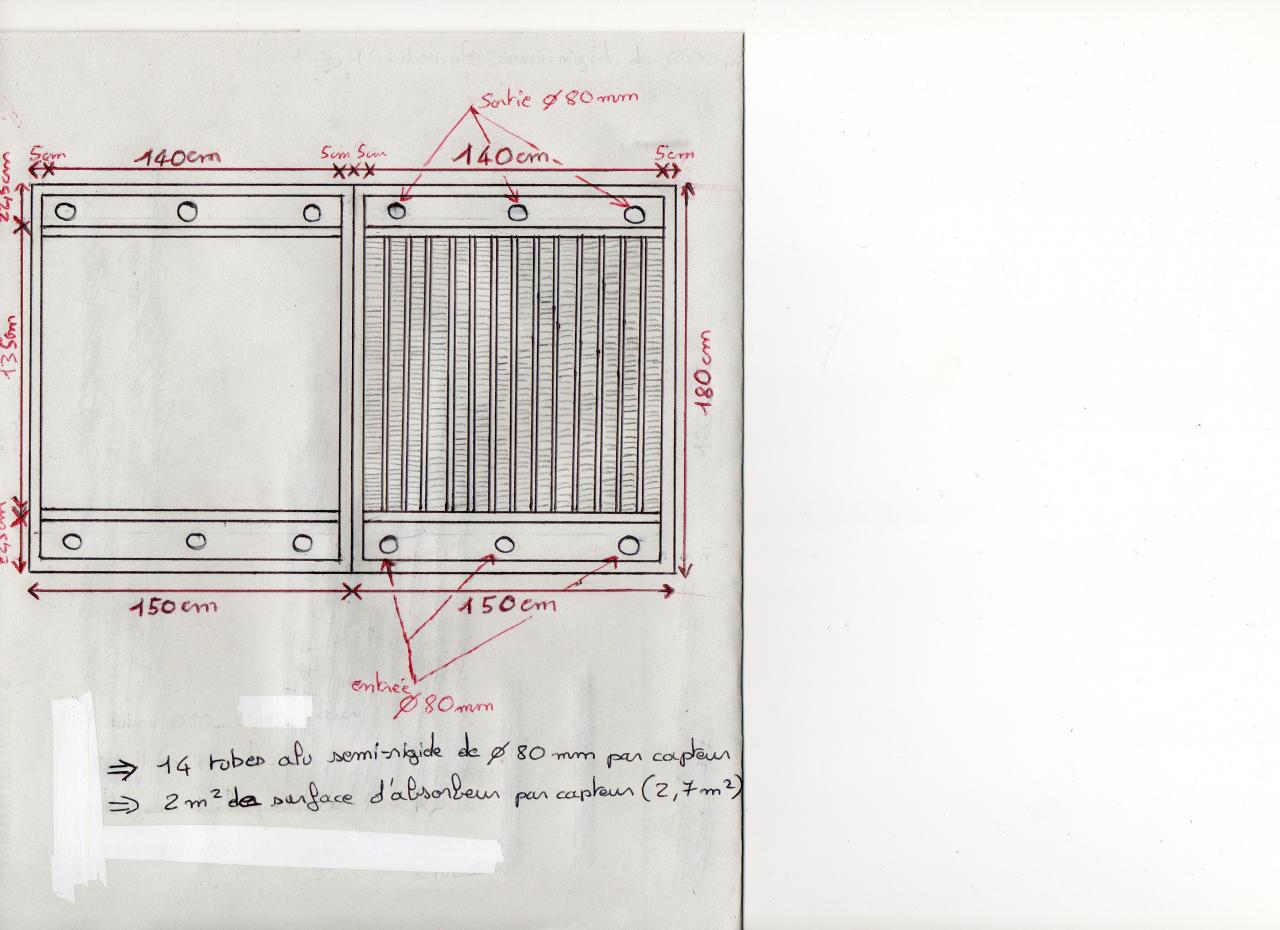 Sortie ø 80 mm
5cm 140cm 5cm 5cm 140cm 5cm
22,5cm
135cm
180cm
22,5cm
150cm 150cm
entrée
ø 80 mm
⇒ 14 tubes alu semi-rigide de ø 80 mm par capteur
⇒ 2 m² de surface d'absorbeur par capteur (2,7 m²)